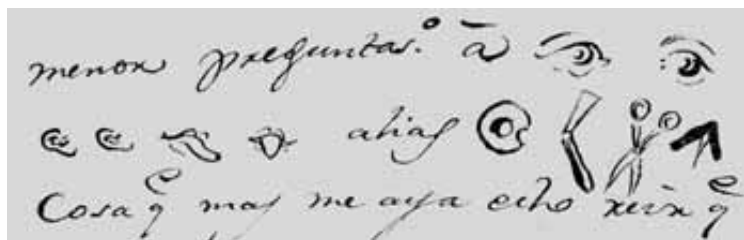 menor preguntas. a
alias
Cosa q^e mas me aya echo reir q^e